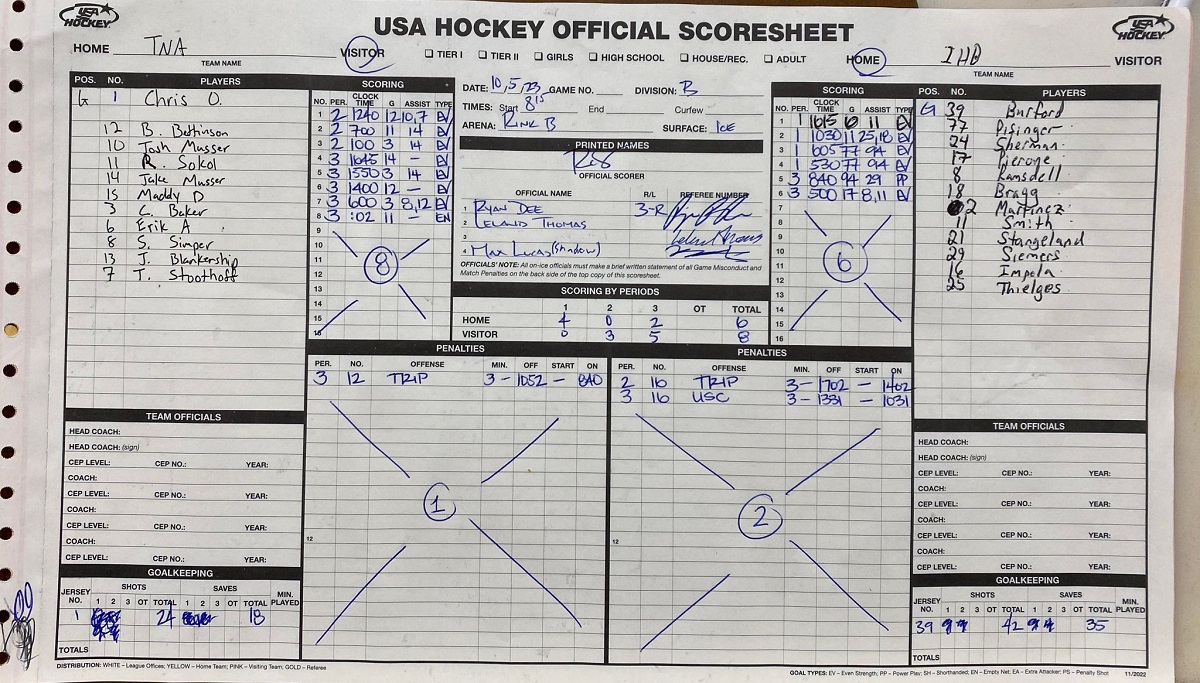 USA HOCKEY
USA HOCKEY OFFICIAL SCORESHEET
USA HOCKEY
HOME TNA VISITOR ☐ TIER I ☐ TIER II ☐ GIRLS ☐ HIGH SCHOOL ☐ HOUSE/REC. ☐ ADULT HOME IHD VISITOR
TEAM NAME TEAM NAME
POS. NO. PLAYERS
G 1 Chris O.
12 B. Bettinson
10 Josh Musser
11 R. Sokol
14 Jake Musser
15 Maddy D
3 C. Baker
6 Erik A
8 S. Simper
13 J. Blankenship
7 T. Stoothoff
SCORING
NO. PER. CLOCK TIME G ASSIST TYPE
1 2 1240 12 10,7 EV
2 2 700 11 14 EV
3 2 100 3 14 EV
4 3 1645 14 – EV
5 3 1550 3 14 EV
6 3 1400 12 – EV
7 3 600 3 8,12 EV
8 3 :02 11 – EN
9
10
11
12
13
14
15
16
8
DATE: 10,5,23 GAME NO. DIVISION: B
TIMES: Start 8¹⁵ End Curfew
ARENA: RINK B SURFACE: ICE
PRINTED NAMES
OFFICIAL SCORER
OFFICIAL NAME R/L REFEREE NUMBER
1 RYAN DEE 3-R
2 LELAND THOMAS
3
4 MAX LUCAS (Shadow)
OFFICIALS' NOTE: All on-ice officials must make a brief written statement of all Game Misconduct and
Match Penalties on the back side of the top copy of this scoresheet.
SCORING BY PERIODS
1 2 3 OT TOTAL
HOME 4 0 2 6
VISITOR 0 3 5 8
SCORING
NO. PER. CLOCK TIME G ASSIST TYPE
1 1 1615 11 EV
2 1 1030 11 25,18 EV
3 1 605 77 94 EV
4 1 530 77 94 EV
5 3 840 94 29 PP
6 3 500 17 8,11 EV
7
8
9
10
11
12
13
14
15
16
6
POS. NO. PLAYERS
G 39 Burford
77 Disinger
24 Sherman
17 Pierone
8 Ramsdell
18 Bragg
2 Martinez
11 Smith
21 Stangeland
29 Siemers
16 Impola
25 Thielges
PENALTIES
PER. NO. OFFENSE MIN. OFF START ON
3 12 TRIP 3 – 1052 – 840
12
1
PENALTIES
PER. NO. OFFENSE MIN. OFF START ON
2 16 TRIP 3 – 1702 – 1402
3 16 USC 3 – 1331 – 1031
12
2
TEAM OFFICIALS
HEAD COACH:
HEAD COACH: (sign)
CEP LEVEL: CEP NO.: YEAR:
COACH:
CEP LEVEL: CEP NO.: YEAR:
COACH:
CEP LEVEL: CEP NO.: YEAR:
COACH:
CEP LEVEL: CEP NO.: YEAR:
GOALKEEPING
JERSEY NO. SHOTS SAVES MIN. PLAYED
1 2 3 OT TOTAL 1 2 3 OT TOTAL
1 24 18
TOTALS
TEAM OFFICIALS
HEAD COACH:
HEAD COACH: (sign)
CEP LEVEL: CEP NO.: YEAR:
COACH:
CEP LEVEL: CEP NO.: YEAR:
COACH:
CEP LEVEL: CEP NO.: YEAR:
COACH:
CEP LEVEL: CEP NO.: YEAR:
GOALKEEPING
JERSEY NO. SHOTS SAVES MIN. PLAYED
1 2 3 OT TOTAL 1 2 3 OT TOTAL
39 42 35
TOTALS
DISTRIBUTION: WHITE – League Offices; YELLOW – Home Team; PINK – Visiting Team; GOLD – Referee
GOAL TYPES: EV – Even Strength; PP – Power Play; SH – Shorthanded; EN – Empty Net; EA – Extra Attacker; PS – Penalty Shot 11/2022